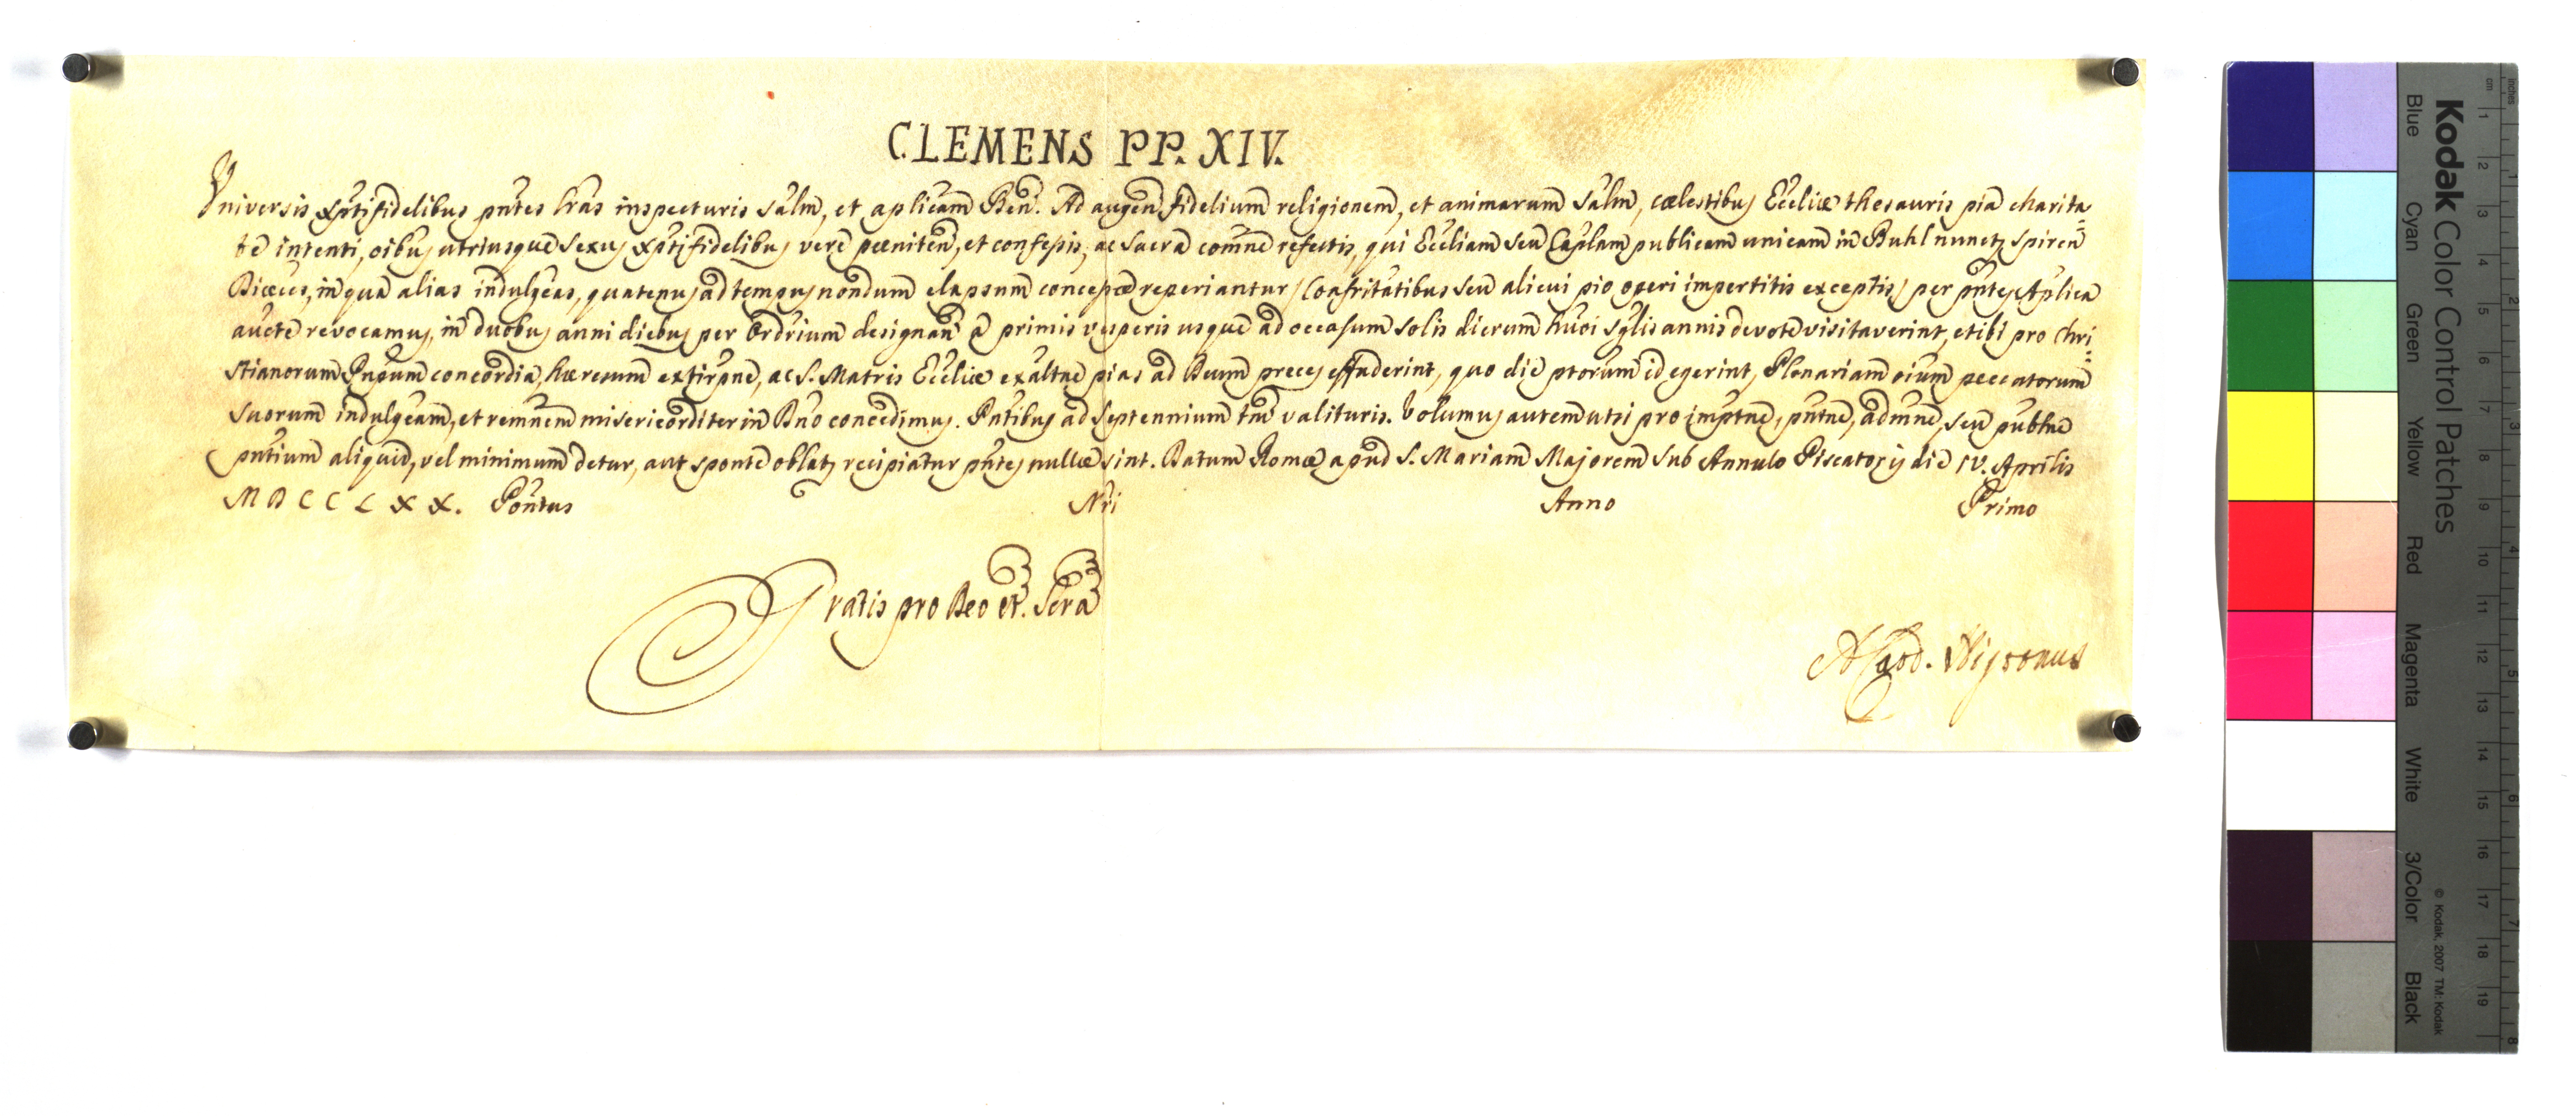 CLEMENS PP. XIV.
Universis Xptifidelibus pntes lras inspecturis salm, et aplicam Ben. Ad augen fidelium religionem, et animarum salm, cælestibus Ecclie thesauris pia charita
te intenti, oibus utriusque sexus Xptifidelibus vere pœniten, et confessis, ac sacra comne refectis, qui Eccliam seu Caplam publicam unicam in Buhl nuncp Spiren
Diœces, in qua alias indulgeas, quatenus ad tempus nondum elapsum concessæ reperiantur (Coafritatibus seu alicui pio operi impertitis exceptis) per pntes Aplica
aucte revocamus, in duobus anni diebus per Ordrium designan a primis vesperis usque ad occasum solis dierum huoi sglis annis devote visitaverint, et ibi pro Chri=
stianorum Pnpum concordia, hæresum extirpne, ac S. Matris Ecclie exaltne pias ad Deum preces effuderint, quo die ptorum id egerint, Plenariam oium peccatorum
suorum indulgeam, et remnem misericorditer in Dno concedimus. Pntibus ad septennium tm valituris. Volumus autem ut si pro imptne, pntne, admne, seu publne
pntium aliquid, vel minimum detur, aut sponte oblat recipiatur pntes nullæ sint. Datum Romæ apud S. Mariam Majorem sub Annulo Piscatoris die IV. Aprilis
MDCCLXX. Pontus Nri Anno Primo
Gratis pro Deo et Scra
Kodak Color Control Patches
Blue Cyan Green Yellow Red Magenta White 3/Color Black
© Kodak, 2007 TM: Kodak
inches 1 2 3 4 5 6 7 8
cm 1 2 3 4 5 6 7 8 9 10 11 12 13 14 15 16 17 18 19